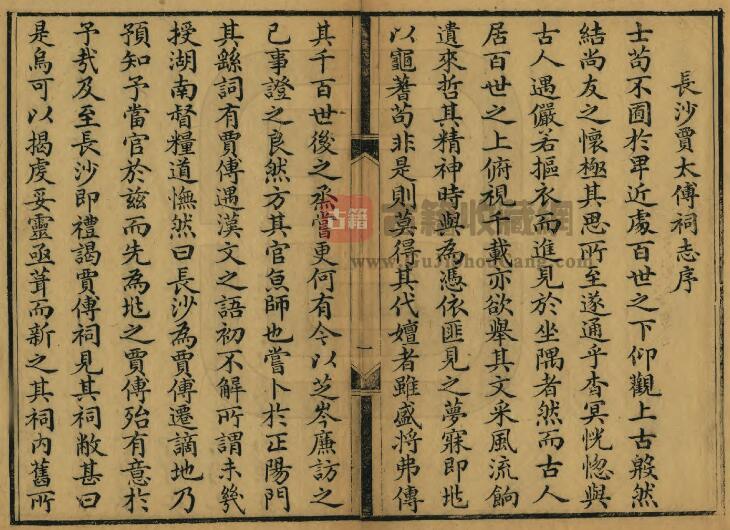 長沙賈太傅祠志序
士苟不囿於卑近處百世之下仰觀上古般然
結尚友之懷極其思所至遂通乎杳冥恍惚與
古人遇儼若摳衣而進見於坐隅者然而古人
居百世之上俯視千載亦欲舉其文采風流餉
遺來哲其精神時與為憑依匪見之夢寐即地
以龜蓍苟非是則莫得其代嬗者雖盛將弗傳
一
其千百世後之烝嘗更何有今以芝岑廉訪之
已事證之良然方其官魚師也嘗卜於正陽門
其繇詞有賈傅遇漢文之語初不解所謂未幾
授湖南督糧道憮然曰長沙為賈傅遷謫地乃
預知予當官於茲而先為地之賈傅殆有意於
予哉及至長沙即禮謁賈傅祠見其祠敝甚曰
是烏可以揭虔妥靈亟葺而新之其祠內舊所
古籍